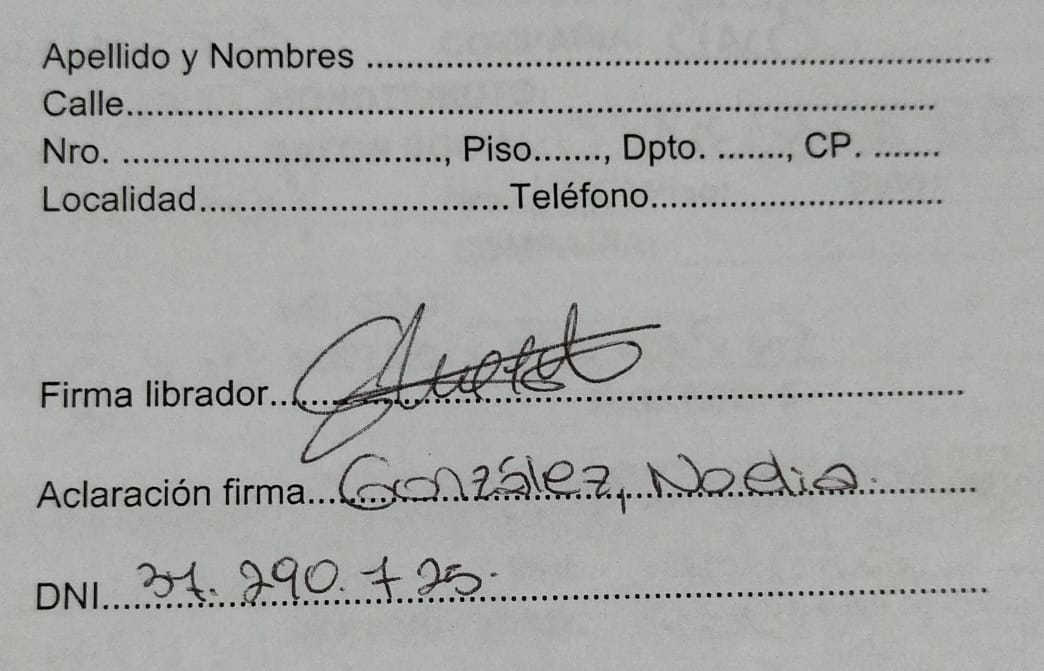 Apellido y Nombres ........................................................................
Calle...............................................................................................
Nro. ................................., Piso......., Dpto. ......., CP. .......
Localidad................................Teléfono..............................
Firma librador..............................................................................
Aclaración firma...González, Nadia.............
DNI...37.290.725...............................................